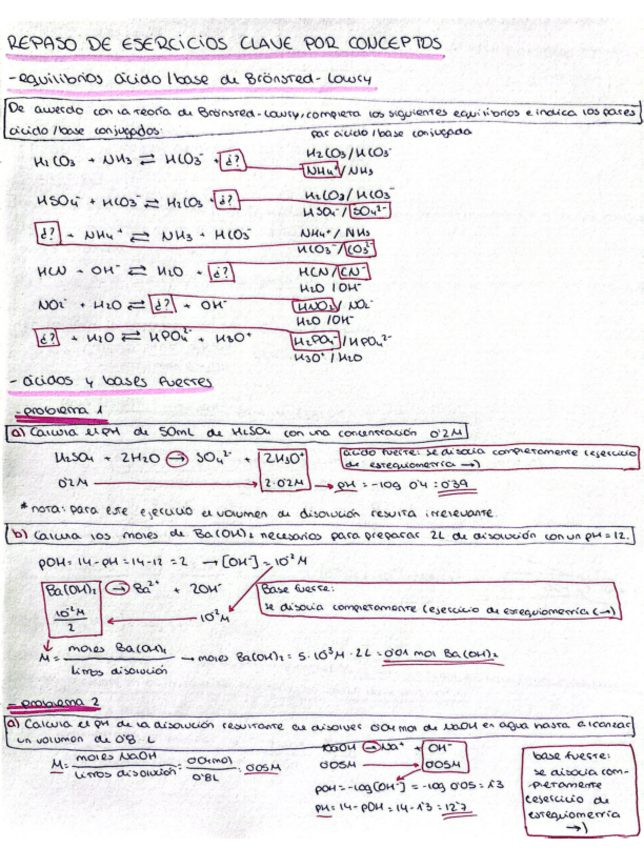 REPASO DE EJERCICIOS CLAVE POR CONCEPTOS
- equilibrios ácido/base de Brönsted-Lowry
De acuerdo con la teoría de Brönsted-Lowry, completa los siguientes equilibrios e indica los pares
ácido/base conjugados:
par ácido/base conjugada
H₂CO₃ + NH₃ ⇌ HCO₃⁻ + ¿?
H₂CO₃/HCO₃⁻
NH₄⁺/NH₃
HSO₄⁻ + HCO₃⁻ ⇌ H₂CO₃ + ¿?
H₂CO₃/HCO₃⁻
HSO₄⁻/SO₄²⁻
¿? + NH₄⁺ ⇌ NH₃ + HCO₃⁻
NH₄⁺/NH₃
HCO₃⁻/CO₃⁻
HCN + OH⁻ ⇌ H₂O + ¿?
HCN/CN⁻
H₂O/OH⁻
NO₂⁻ + H₂O ⇌ ¿? + OH⁻
HNO₂/NO₂⁻
H₂O/OH⁻
¿? + H₂O ⇌ HPO₄²⁻ + H₃O⁺
H₂PO₄⁻/HPO₄²⁻
H₃O⁺/H₂O
- ácidos y bases fuertes
- problema 1
a) Calcula el pH de 50mL de H₂SO₄ con una concentración 0'2M
H₂SO₄ + 2H₂O → SO₄²⁻ + 2H₃O⁺
ácido fuerte: se disocia completamente (ejercicio
de estequiometría →)
0'2M → 2·0'2M → pH = -log 0'4 = 0'39
* nota: para este ejercicio el volumen de disolución resulta irrelevante.
b) Calcula los moles de Ba(OH)₂ necesarios para preparar 2L de disolución con un pH = 12.
pOH = 14-pH = 14-12 = 2 → [OH⁻] = 10⁻²M
Ba(OH)₂ → Ba²⁺ + 2OH⁻
Base fuerte:
se disocia completamente (ejercicio de estequiometría (→)
10⁻²M / 2 ← 10⁻²M
M = moles Ba(OH)₂ / litros disolución → moles Ba(OH)₂ = 5·10⁻³M · 2L = 0'01 mol Ba(OH)₂
- problema 2
a) Calcula el pH de la disolución resultante de disolver 0'04 mol de NaOH en agua hasta alcanzar
un volumen de 0'8 L
M = moles NaOH / litros disolución = 0'04mol / 0'8L = 0'05M
NaOH → Na⁺ + OH⁻
0'05M → 0'05M
pOH = -log[OH⁻] = -log 0'05 = 1'3
pH = 14-pOH = 14-1'3 = 12'7
base fuerte:
se disocia com-
pletamente
(ejercicio de
estequiometría
→)